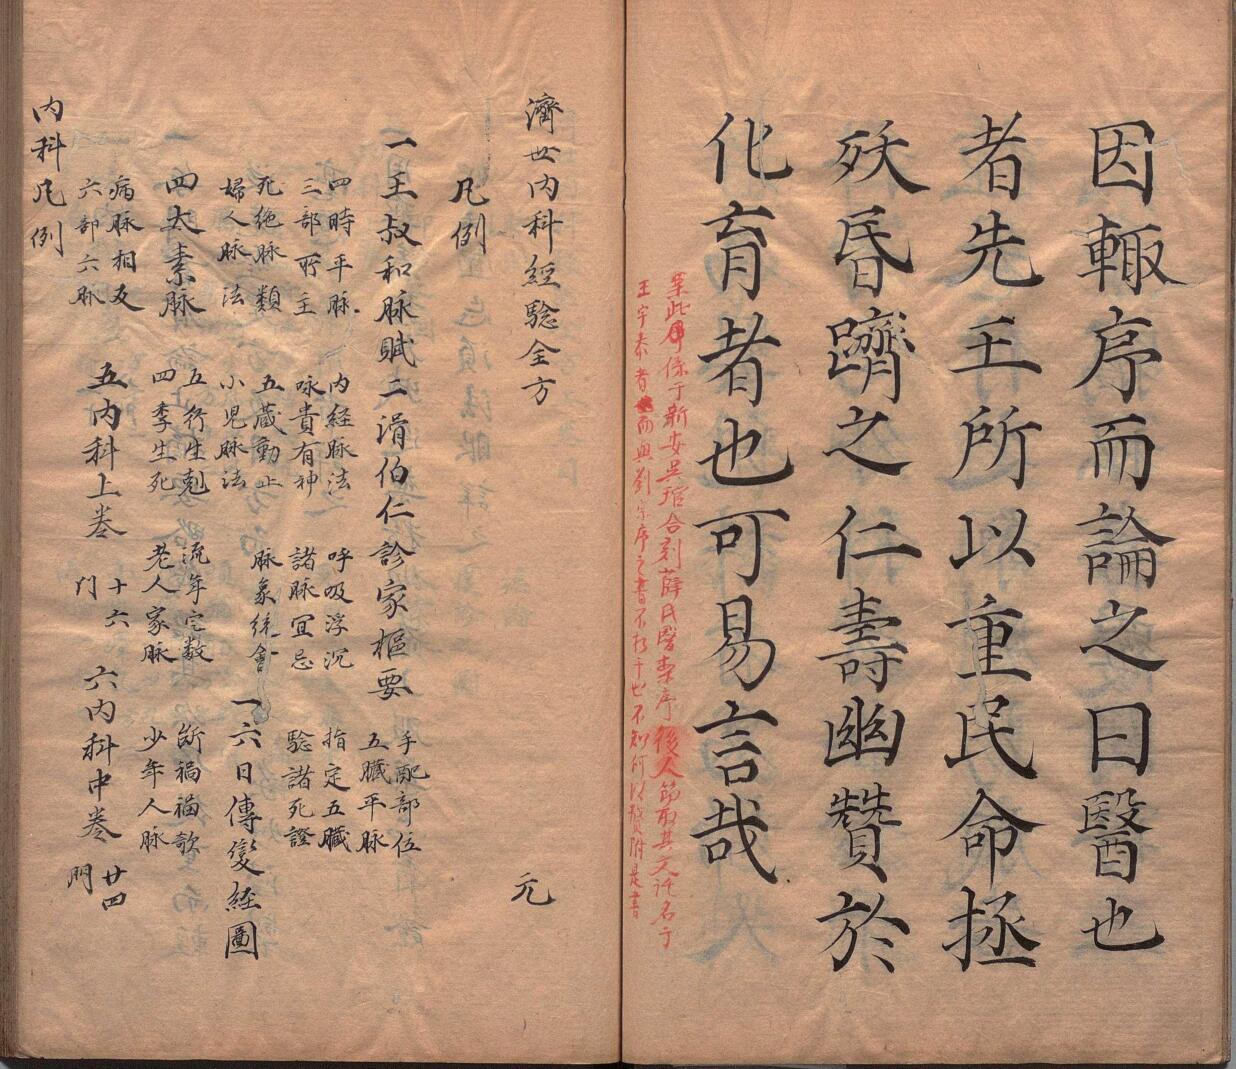 因輙序而論之曰醫也
者先王所以重民命拯
殀昬躋之仁壽幽贊於
化育者也可易言哉
案此序係于新安吳琯合刻薛氏醫案序後人節取其文託名于
王宇泰者而與劉宗序之書不相干也不知何以贅附是書
濟世内科經驗全方 元
凡例
一王叔和脉賦二滑伯仁診家樞要 手配部位 五臟平脉
四時平脉 三部所主 内経脉法 咏貴有神 呼吸浮沉 諸脉宜忌 指定五臟 驗諸死證
死絶脉類 婦人脉法 五蔵動止 小児脉法 脉象統會 一六日傳變経圖
四太素脉 五行生剋 四季生死 流年定数 老人家脉 斷禍福歌 少年人脉
病脉相反 六部六脉 五内科上卷 十六門 六内科中卷 廿四門
内科凡例